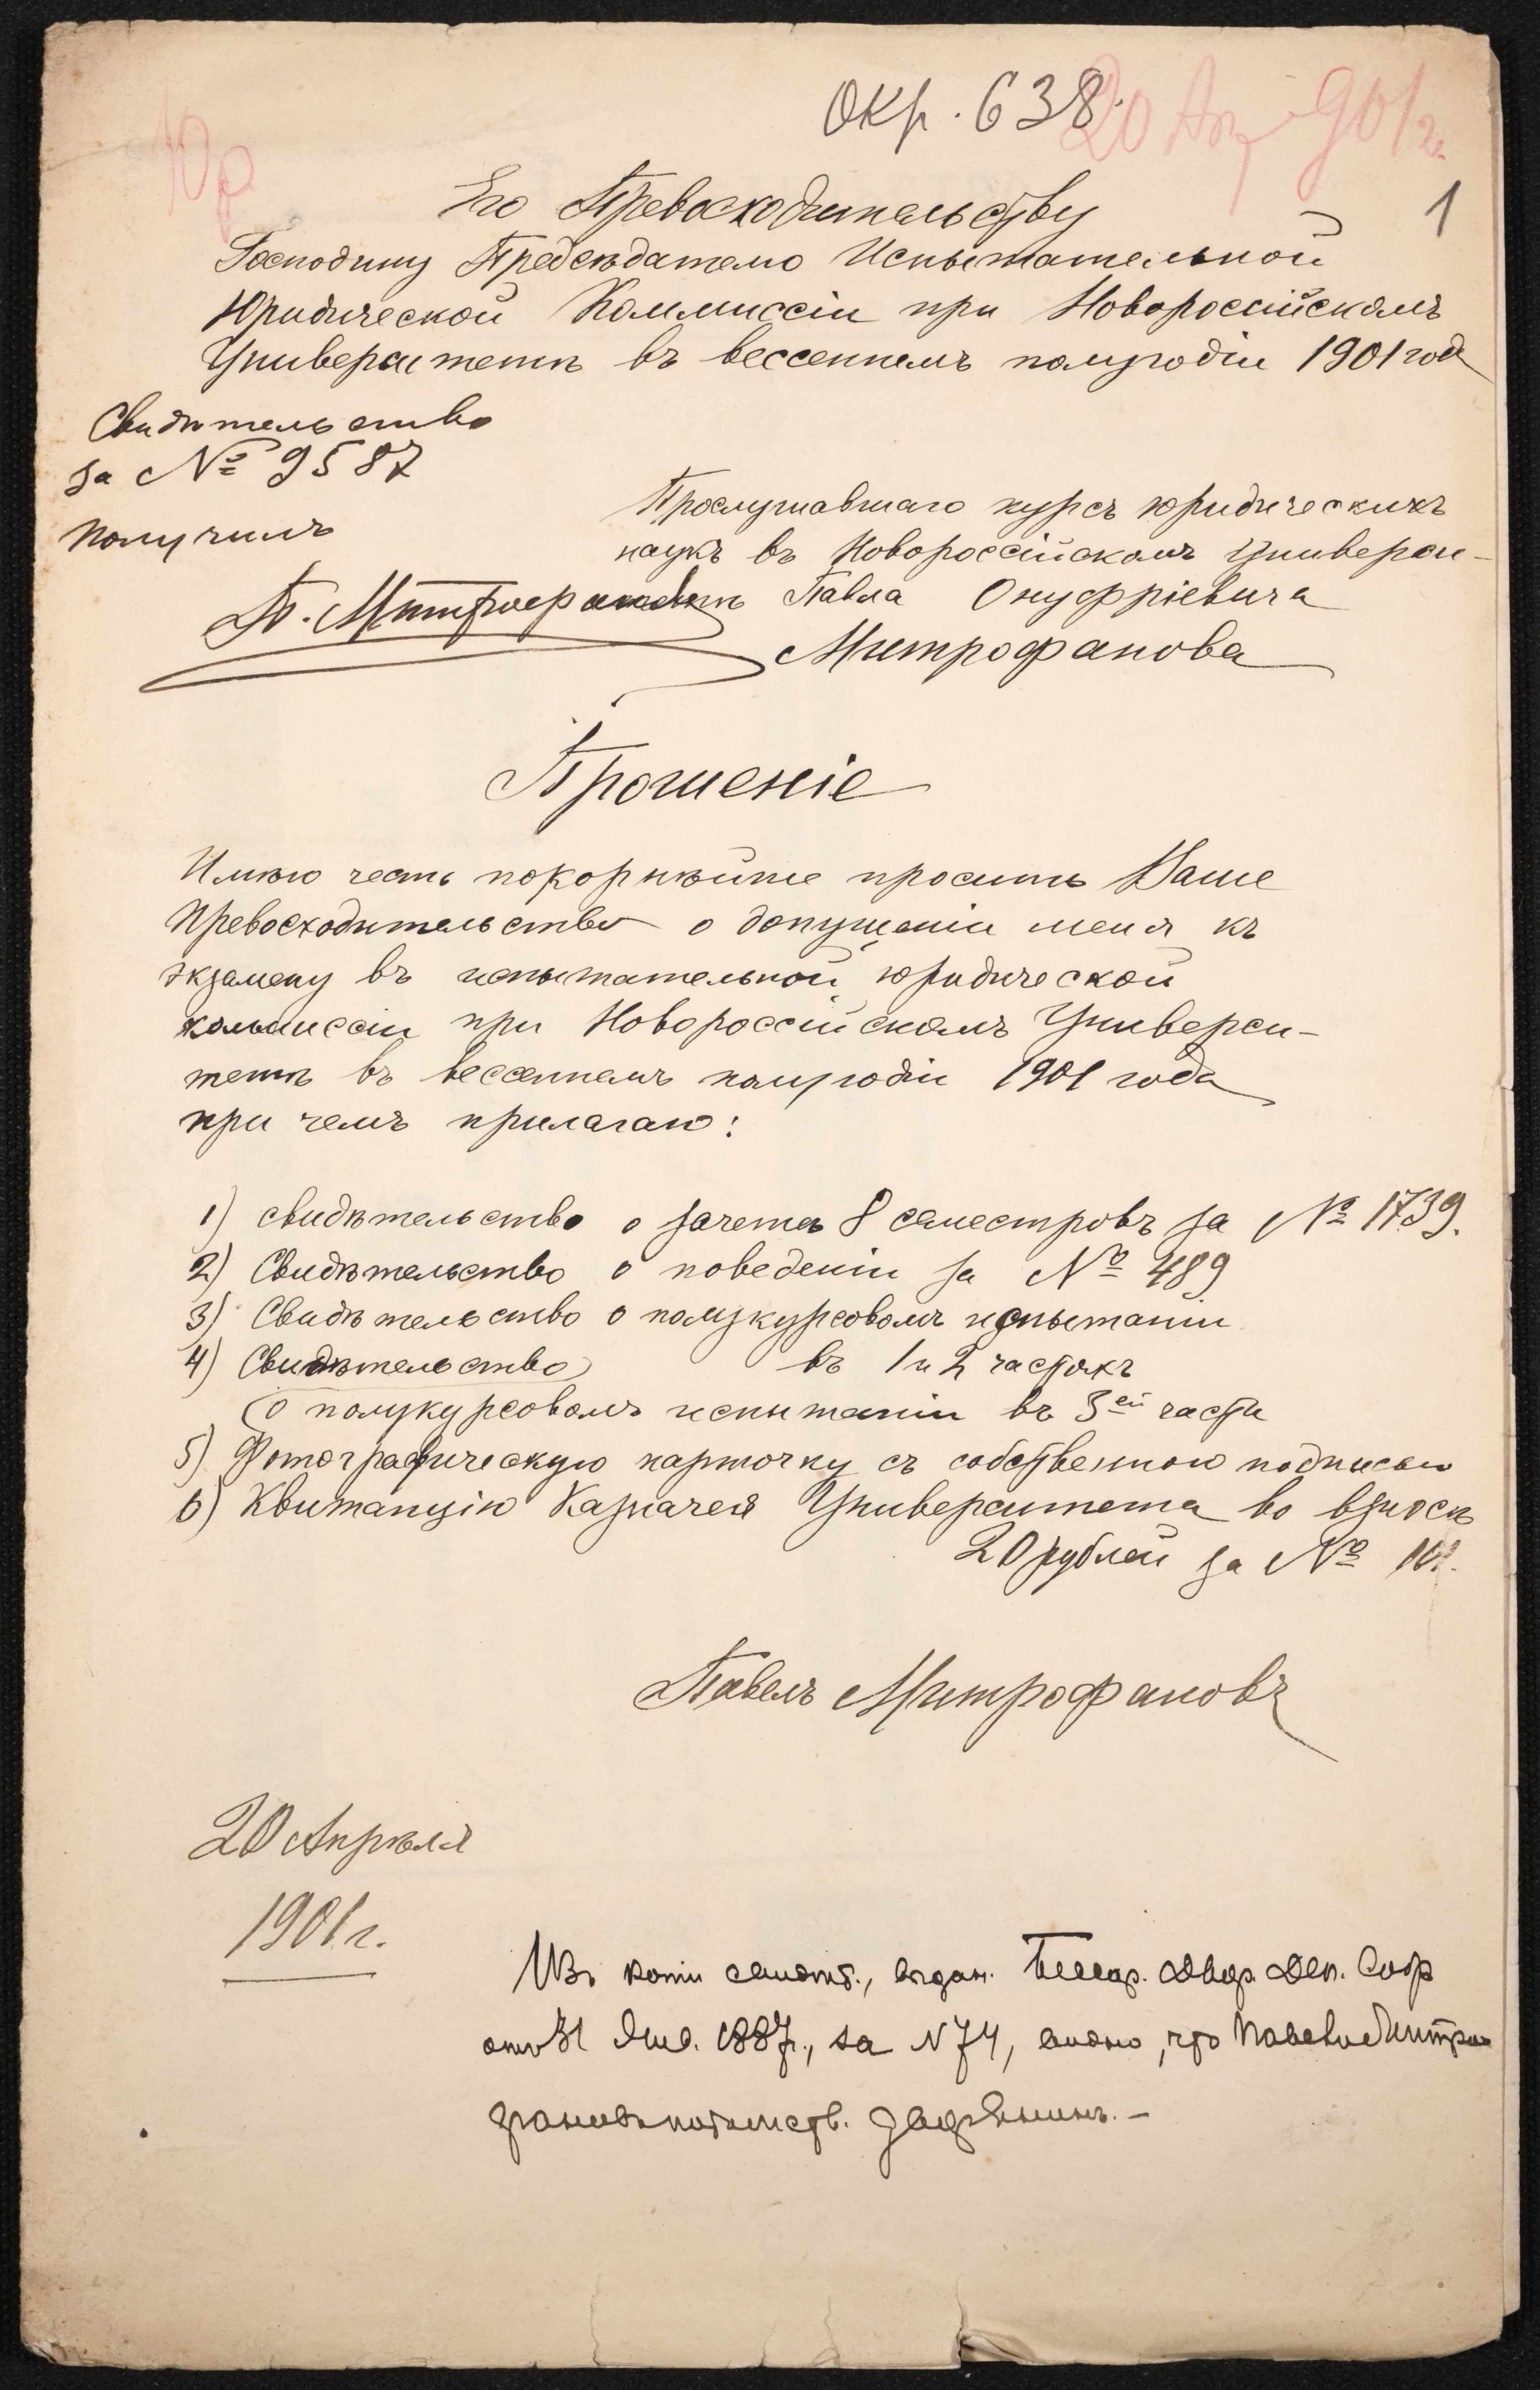 Окр. 638.
20 Ап 901 г.
Юр
1
Его Превосходительству
Господину Предсѣдателю Испытательной
Юридической Коммиссіи при Новороссійскомъ
Университетѣ въ вессеннемъ полугодіи 1901 года
Свидѣтельство
за № 9587
получилъ
П. Митрофановъ
Прослушавшаго курсъ юридическихъ
наукъ въ Новороссійскомъ Универси-
Павла Онуфріевича
Митрофанова
Прошеніе
Имѣю честь покорнѣйше просить Ваше
Превосходительство о допущеніи меня къ
экзамену въ испытательной юридической
коммиссіи при Новороссійскомъ Универси-
тетѣ въ вессеннемъ полугодіи 1901 года
при чемъ прилагаю:
1) свидѣтельство о зачетѣ 8 семестровъ за № 1739.
2) Свидѣтельство о поведеніи за № 489
3) Свидѣтельство о полукурсовомъ испытаніи
4) Свидѣтельство въ 1 и 2 частяхъ
о полукурсовомъ испытаніи въ 3ей части
5) Фотографическую карточку съ собственною подписью
6) Квитанцію Казначея Университета во взносѣ
20 рублей за № 101.
Павелъ Митрофановъ
20 Апрѣля
1901 г.
Изъ копіи свидѣт., выдан. Бессар. Двор. Деп. Собр
отъ 31 Янв. 1887, за N 74, видно, что Павелъ Митро
фановъ потомств. дворянинъ. –